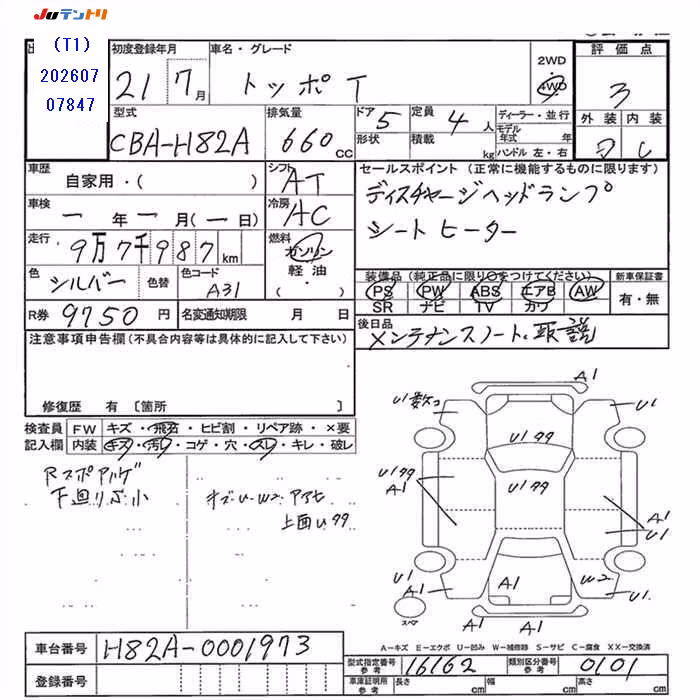 JUテントリ
(T1)
202607
07847
初度登録年月
21 7月
車名・グレード
トッポT
2WD
4WD
評価点
3
外装 内装
C
型式
CBA-H82A
排気量
660 CC
ドア 5
形状
定員 4 人
積載 kg
ディーラー・並行
モデル年式 年
ハンドル 左・右
車歴
自家用・( )
シフト AT
車検
一年一月(一日)
冷房 AC
セールスポイント (正常に機能するものに限ります)
ディスチャージヘッドランプ
シートヒーター
走行
9万7千987km
燃料
ガソリン
軽油
( ・ )
色 シルバー
色替
色コード A31
装備品 (純正品に限り○をつけてください)
PS PW ABS エアB AW
SR ナビ TV カワ
新車保証書
有・無
R券 9750 円
名変通知期限 月 日
後日品
メンテナンスノート、取説
注意事項申告欄(不具合内容等は具体的に記入して下さい)
修復歴 有 〔箇所 〕
検査員記入欄
FW キズ・飛石・ヒビ割・リペア跡・×要
内装 キズ・汚レ・コゲ・穴・スレ・キレ・破レ
下廻りサビ小
上面U99
A1
U1
U1 99
U1 99
U1 99
A1
A1
U1
U1
A1
A1
A1
W2
U1
スペア
A-キズ E-エクボ U-凹み W-補修跡 S-サビ C-腐食 XX-交換済
車台番号 H82A-0001973
登録番号
型式指定番号 参考 16162
類別区分番号 参考 0101
車庫証明用 参考 長さ cm 幅 cm 高さ cm